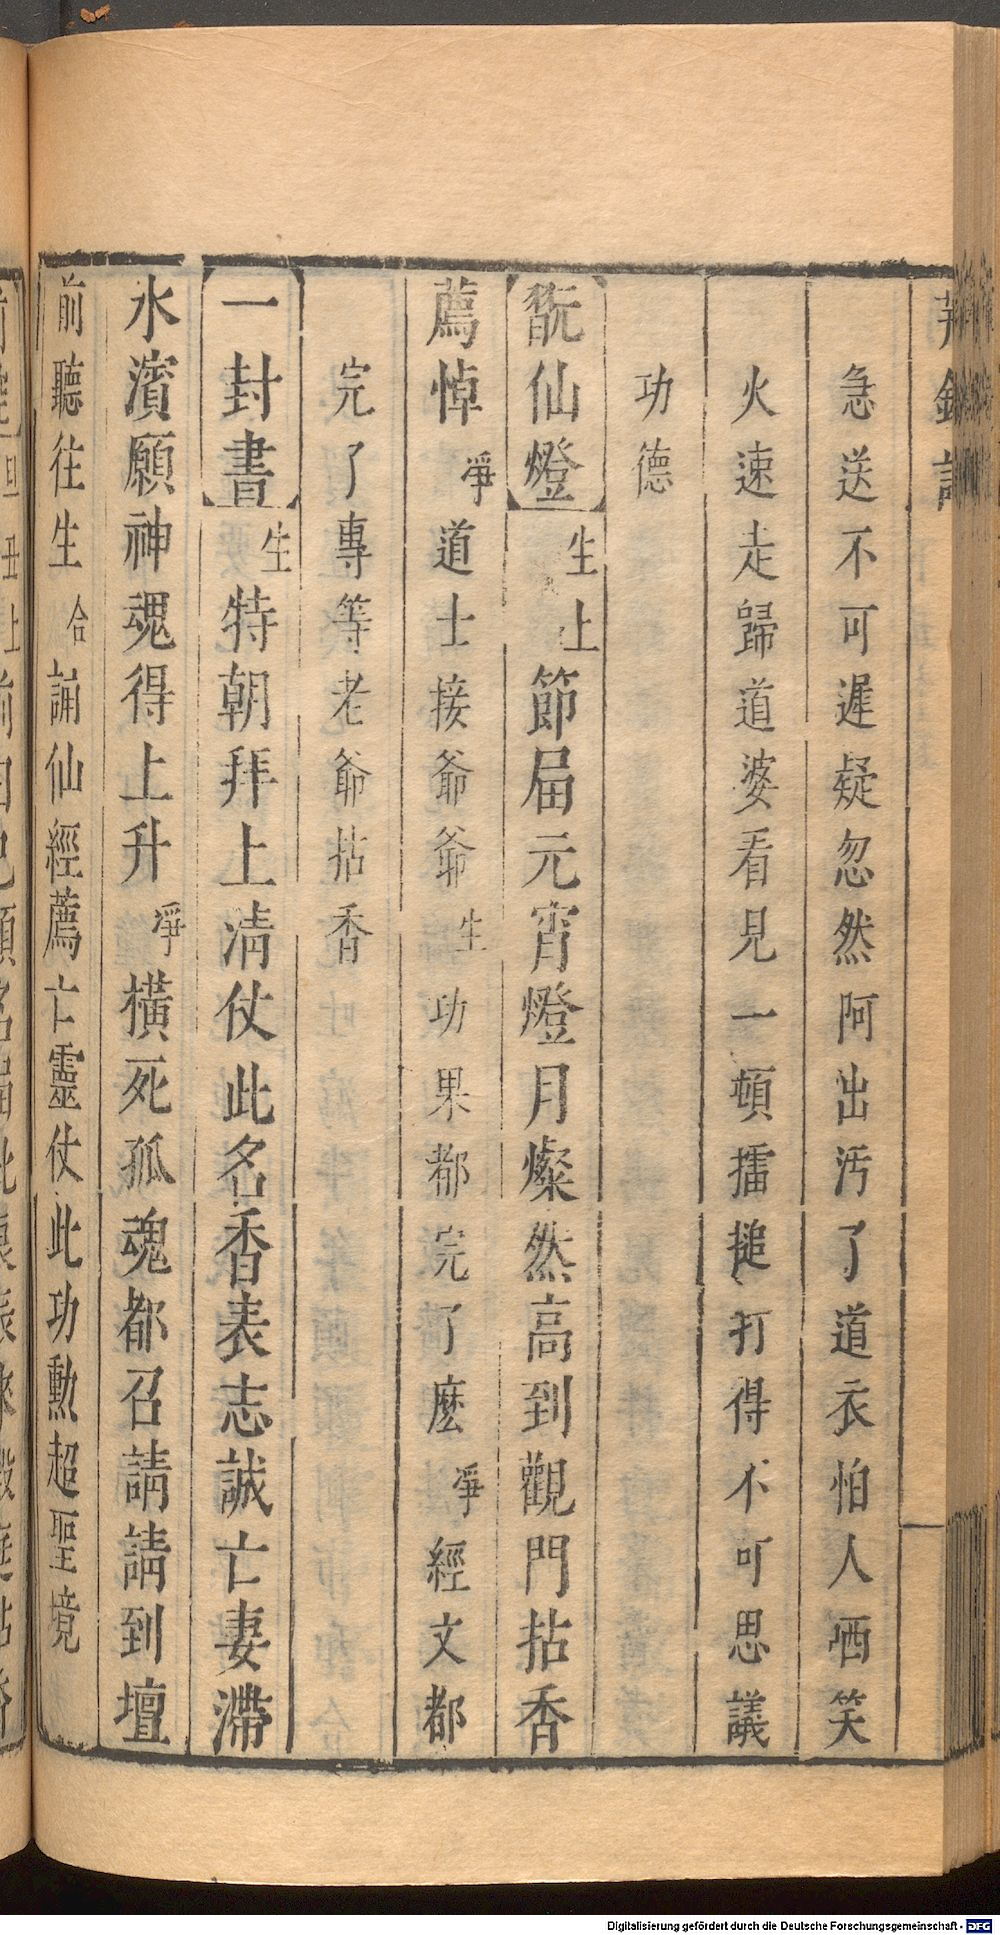 荊釵記
急送不可遲疑忽然阿出汚了道衣怕人哂笑
火速走歸道婆看見一頓擂搥打得不可思議
功德
翫仙燈生上節届元宵燈月燦然高到觀門拈香
薦悼淨道士接爺爺生功果都完了麽淨經文都
完了專等老爺拈香
一封書生特朝拜上淸仗此名香表志誠亡妻滯
水濱願神魂得上升淨橫死孤魂都召請請到壇
前聽往生合誦仙經薦亡靈仗此功勲超聖境
Digitalisierung gefördert durch die Deutsche Forschungsgemeinschaft - DFG